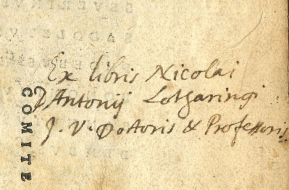 Ex libris Nicolai
Antonij Lotharingi
J. V. Doctoris & Professoris
COMITE